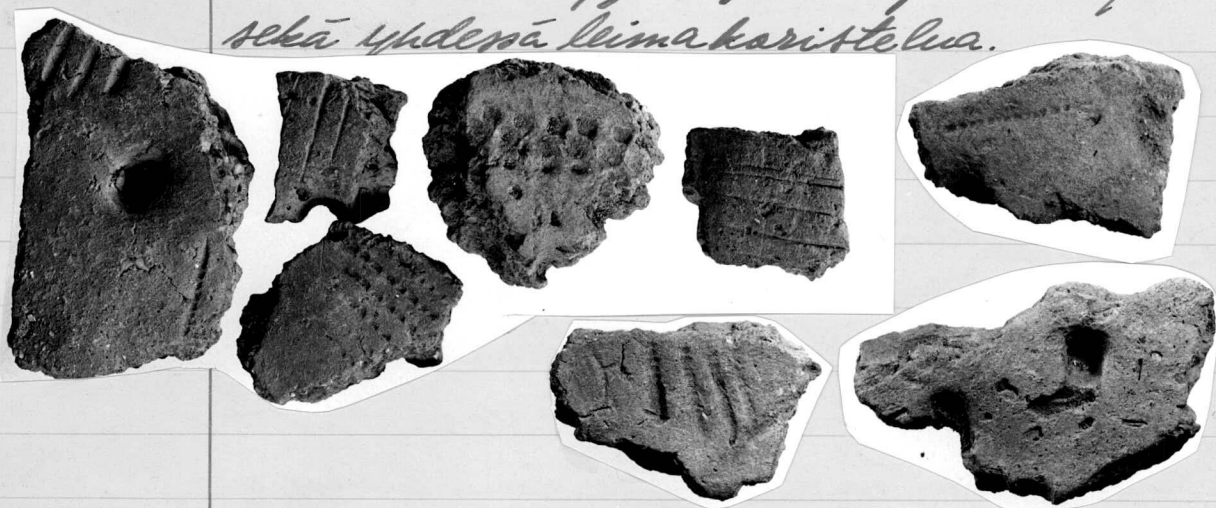 sekä yhdessä leimakoristelua.